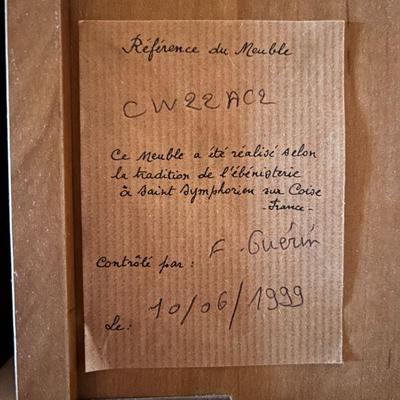 Référence du Meuble
CW22AC2
Ce Meuble a été réalisé selon
la tradition de l'ébénisterie
à Saint Symphorien sur Coise
- France -
Contrôlé par : F. Guérin
Le : 10/06/1999